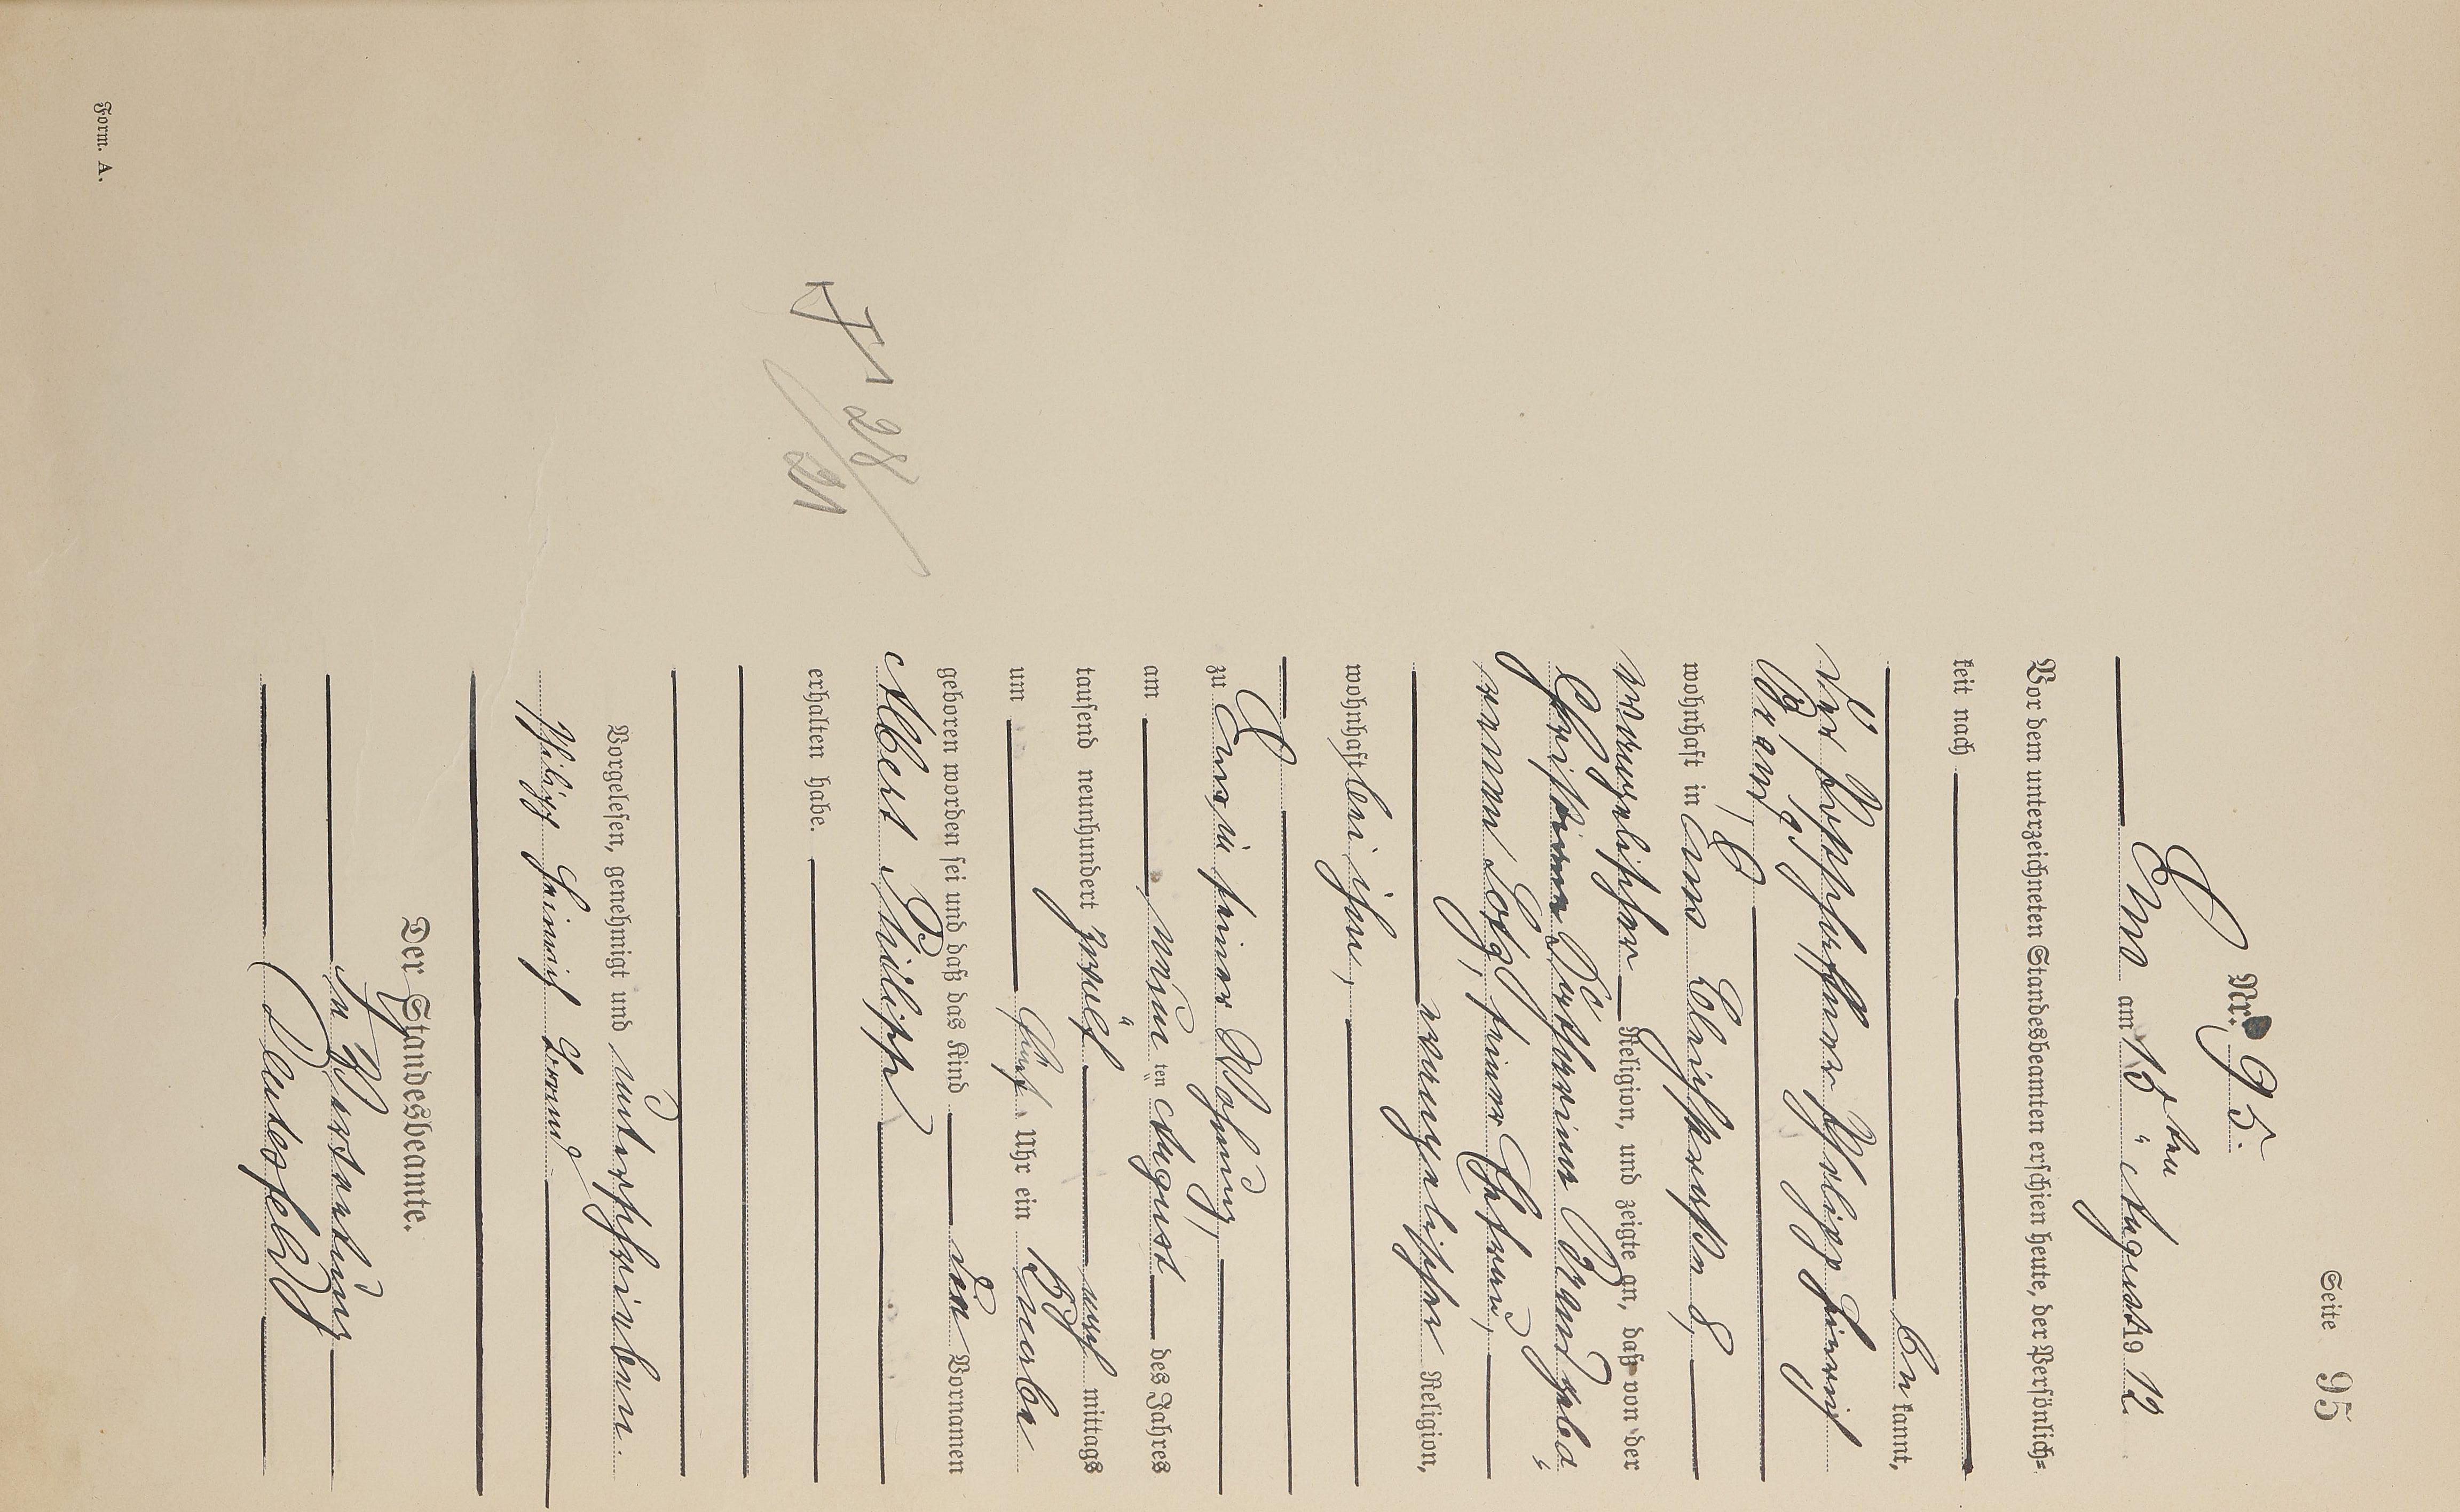 Seite 95
Nr. 95.
Ems am 13ten August 1912.
Vor dem unterzeichneten Standesbeamten erschien heute, der Persönlich=
keit nach
be kannt,
der Postschaffner Philipp Heinrich
Brand,
wohnhaft in Ems 8,
evangelischer Religion, und zeigte an, daß von der
Christiane Katharine Brand gebo
renen Lotz, seiner Ehefrau,
evangelischer Religion,
wohnhaft bei ihm,
zu Ems in seiner Wohnung,
am neunten August des Jahres
tausend neunhundert zwölf nach mittags
um fünf Uhr ein Knabe
geboren worden sei und daß das Kind die Vornamen
Albert Philipp
erhalten habe.
Vorgelesen, genehmigt und unterschrieben.
Philipp Heinrich Brand
Der Standesbeamte.
In Vertretung
Deutesfeld
28
21
Form. A.